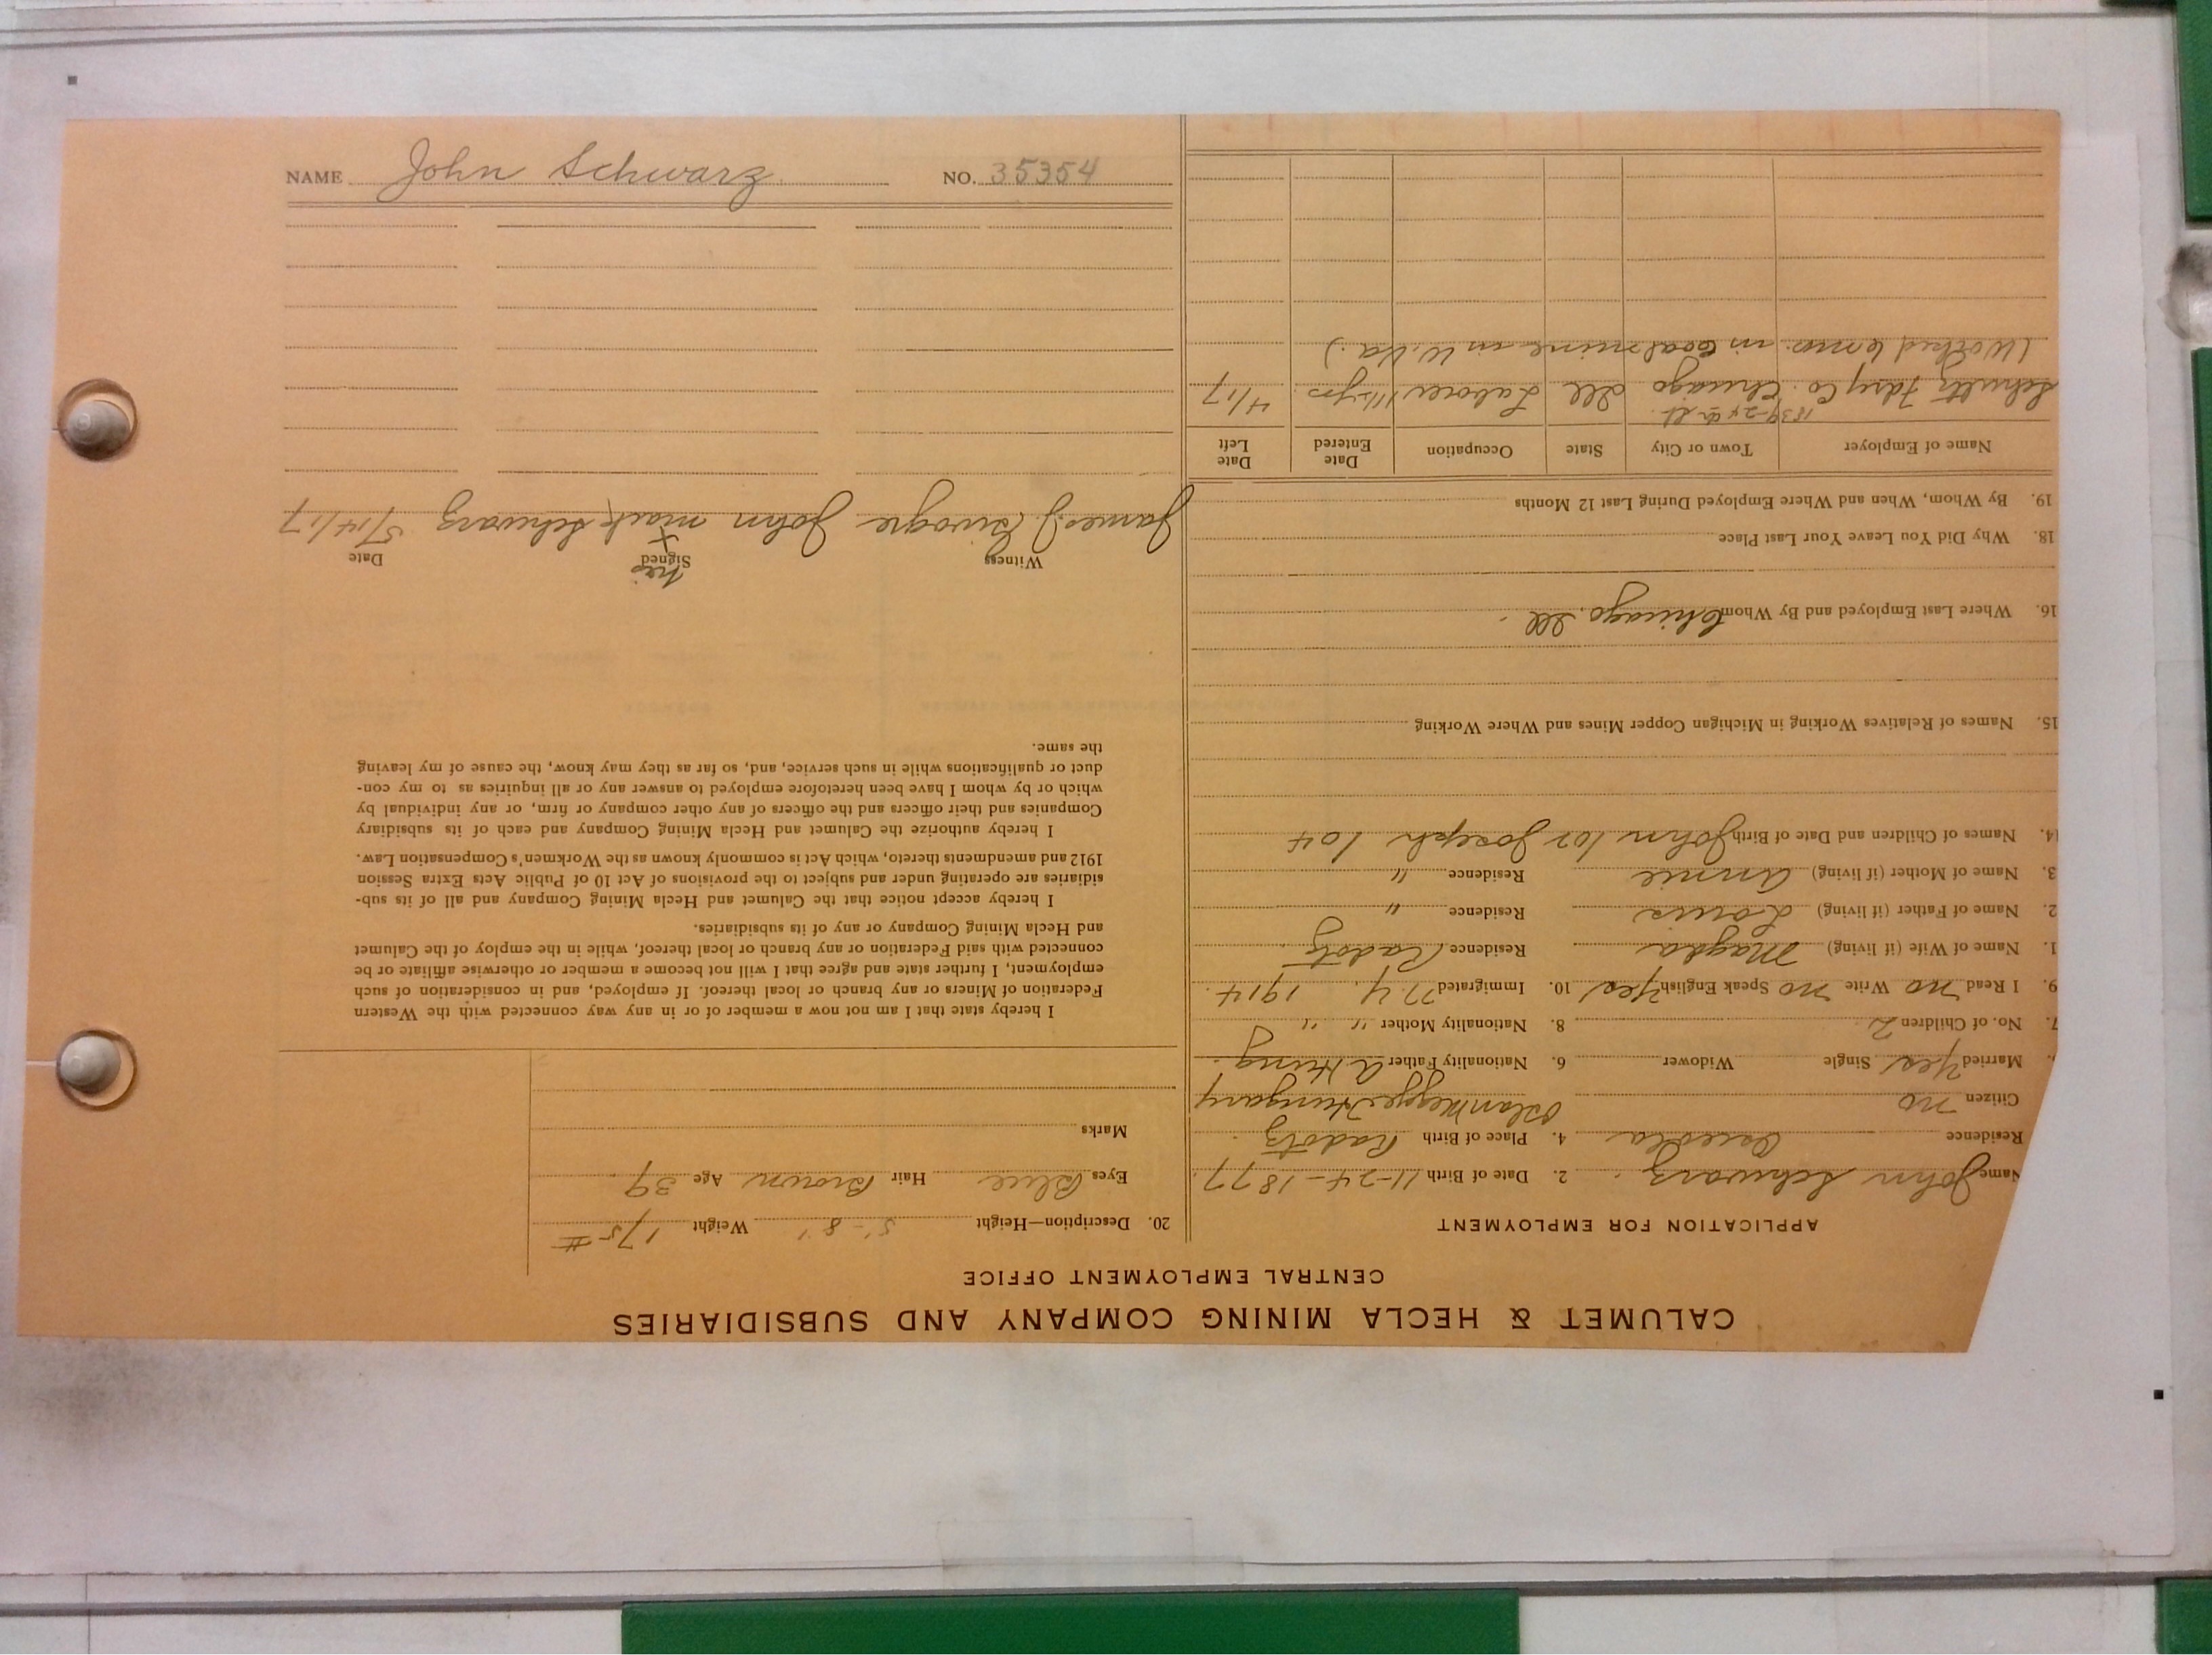 NAME John Schwarz NO. 35354
CALUMET & HECLA MINING COMPANY AND SUBSIDIARIES
CENTRAL EMPLOYMENT OFFICE
APPLICATION FOR EMPLOYMENT
Name John Schwarz 2. Date of Birth 11-24-1877
Residence Osceola 4. Place of Birth Radotz
Citizen no Hungary
Married Yes Single Widower 6. Nationality Father a Hung
7. No. of Children 2 8. Nationality Mother " "
9. I Read no Write no Speak English Yes 10. Immigrated N.Y. 1914.
1. Name of Wife (if living) Magda Residence Radotz
2. Name of Father (if living) Louis Residence "
3. Name of Mother (if living) Annie Residence "
14. Names of Children and Date of Birth John Joseph
15. Names of Relatives Working in Michigan Copper Mines and Where Working
16. Where Last Employed and By Whom Chicago, Ill.
18. Why Did You Leave Your Last Place
19. By Whom, When and Where Employed During Last 12 Months
Name of Employer Town or City State Occupation Date Entered Date Left
1839-24th St.
Schultz Co. Chicago Ill Laborer 4/17
(Worked 6 mos. in Coal mine in W. Va.)
20. Description—Height 5'-8" Weight 175#
Eyes Blue Hair Brown Age 39
Marks
I hereby state that I am not now a member of or in any way connected with the Western
Federation of Miners or any branch or local thereof. If employed, and in consideration of such
employment, I further state and agree that I will not become a member or otherwise affiliate or be
connected with said Federation or any branch or local thereof, while in the employ of the Calumet
and Hecla Mining Company or any of its subsidiaries.
I hereby accept notice that the Calumet and Hecla Mining Company and all of its sub-
sidiaries are operating under and subject to the provisions of Act 10 of Public Acts Extra Session
1912 and amendments thereto, which Act is commonly known as the Workmen's Compensation Law.
I hereby authorize the Calumet and Hecla Mining Company and each of its subsidiary
Companies and their officers and the officers of any other company or firm, or any individual by
which or by whom I have been heretofore employed to answer any or all inquiries as to my con-
duct or qualifications while in such service, and, so far as they may know, the cause of my leaving
the same.
his
Witness Signed Date
X
James J. John mark Schwarz 5/14/17